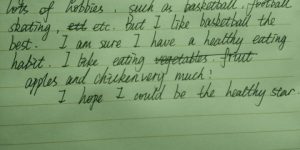 lots of hobbies, such as basketball, football,
skating, etc. But I like basketball the
best. I am sure I have a healthy eating
habit. I like eating vegetables, fruit
apples and chicken very much!
I hope I could be the healthy star.